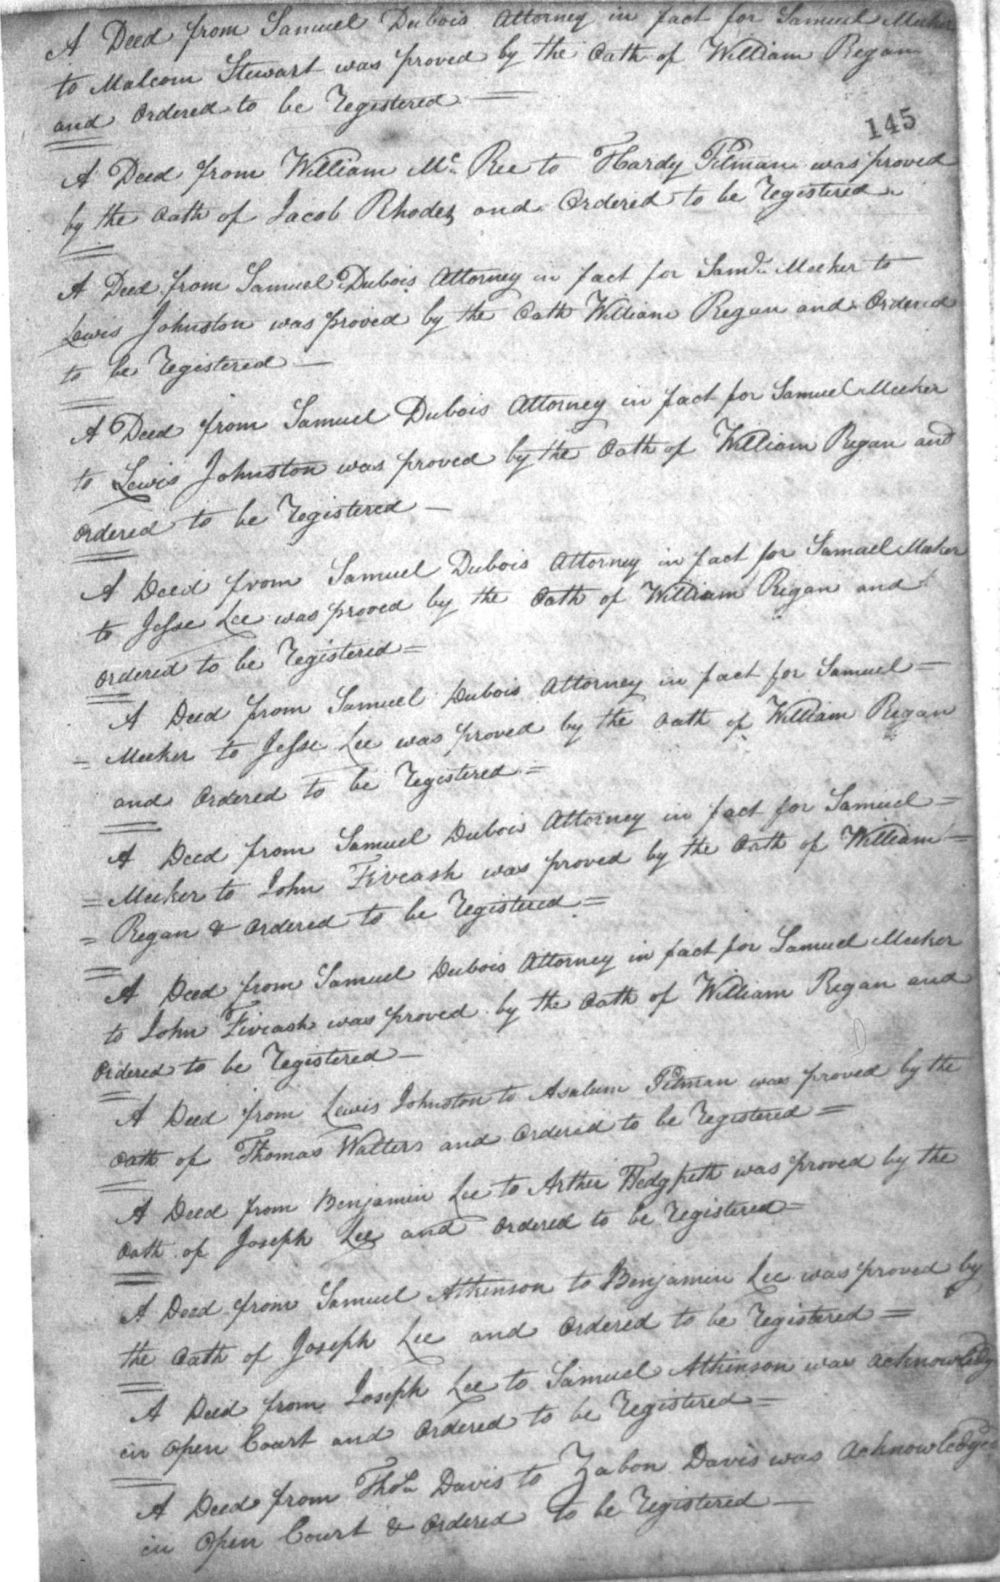 A Deed from Samuel Dubois Attorney in fact for Samuel Meeker
to Malcom Stewart was proved by the Oath of William Regan
and Ordered to be Registered
145
A Deed from William Mc Ree to Hardy Pitman was proved
by the Oath of Jacob Rhodes and Ordered to be Registered
A Deed from Samuel Dubois Attorney in fact for Saml Meeker to
Lewis Johnston was proved by the Oath William Regan and Ordered
to be Registered —
A Deed from Samuel Dubois Attorney in fact for Samuel Meeker
to Lewis Johnston was proved by the Oath of William Regan and
Ordered to be Registered —
A Deed from Samuel Dubois Attorney in fact for Samuel Meeker
to Jesse Lee was proved by the Oath of William Regan and
Ordered to be Registered =
A Deed from Samuel Dubois Attorney in fact for Samuel =
= Meeker to Jesse Lee was proved by the Oath of William Regan
and Ordered to be Registered =
A Deed from Samuel Dubois Attorney in fact for Samuel =
= Meeker to John Fiveash was proved by the Oath of William =
= Regan & Ordered to be Registered =
A Deed from Samuel Dubois Attorney in fact for Samuel Meeker
to John Fiveash was proved by the Oath of William Regan and
Ordered to be Registered —
A Deed from Lewis Johnston to Asalum Pitman was proved by the
Oath of Thomas Watters and Ordered to be Registered =
A Deed from Benjamin Lee to Arther Hedgpeth was proved by the
Oath of Joseph Lee and Ordered to be Registered =
A Deed from Samuel Atkinson to Benjamin Lee was proved by
the Oath of Joseph Lee and Ordered to be Registered =
A Deed from Joseph Lee to Samuel Atkinson was acknowledg
in Open Court and Ordered to be Registered =
A Deed from Thos Davis to Zabon Davis was Acknowledged
in Open Court & Ordered to be Registered —